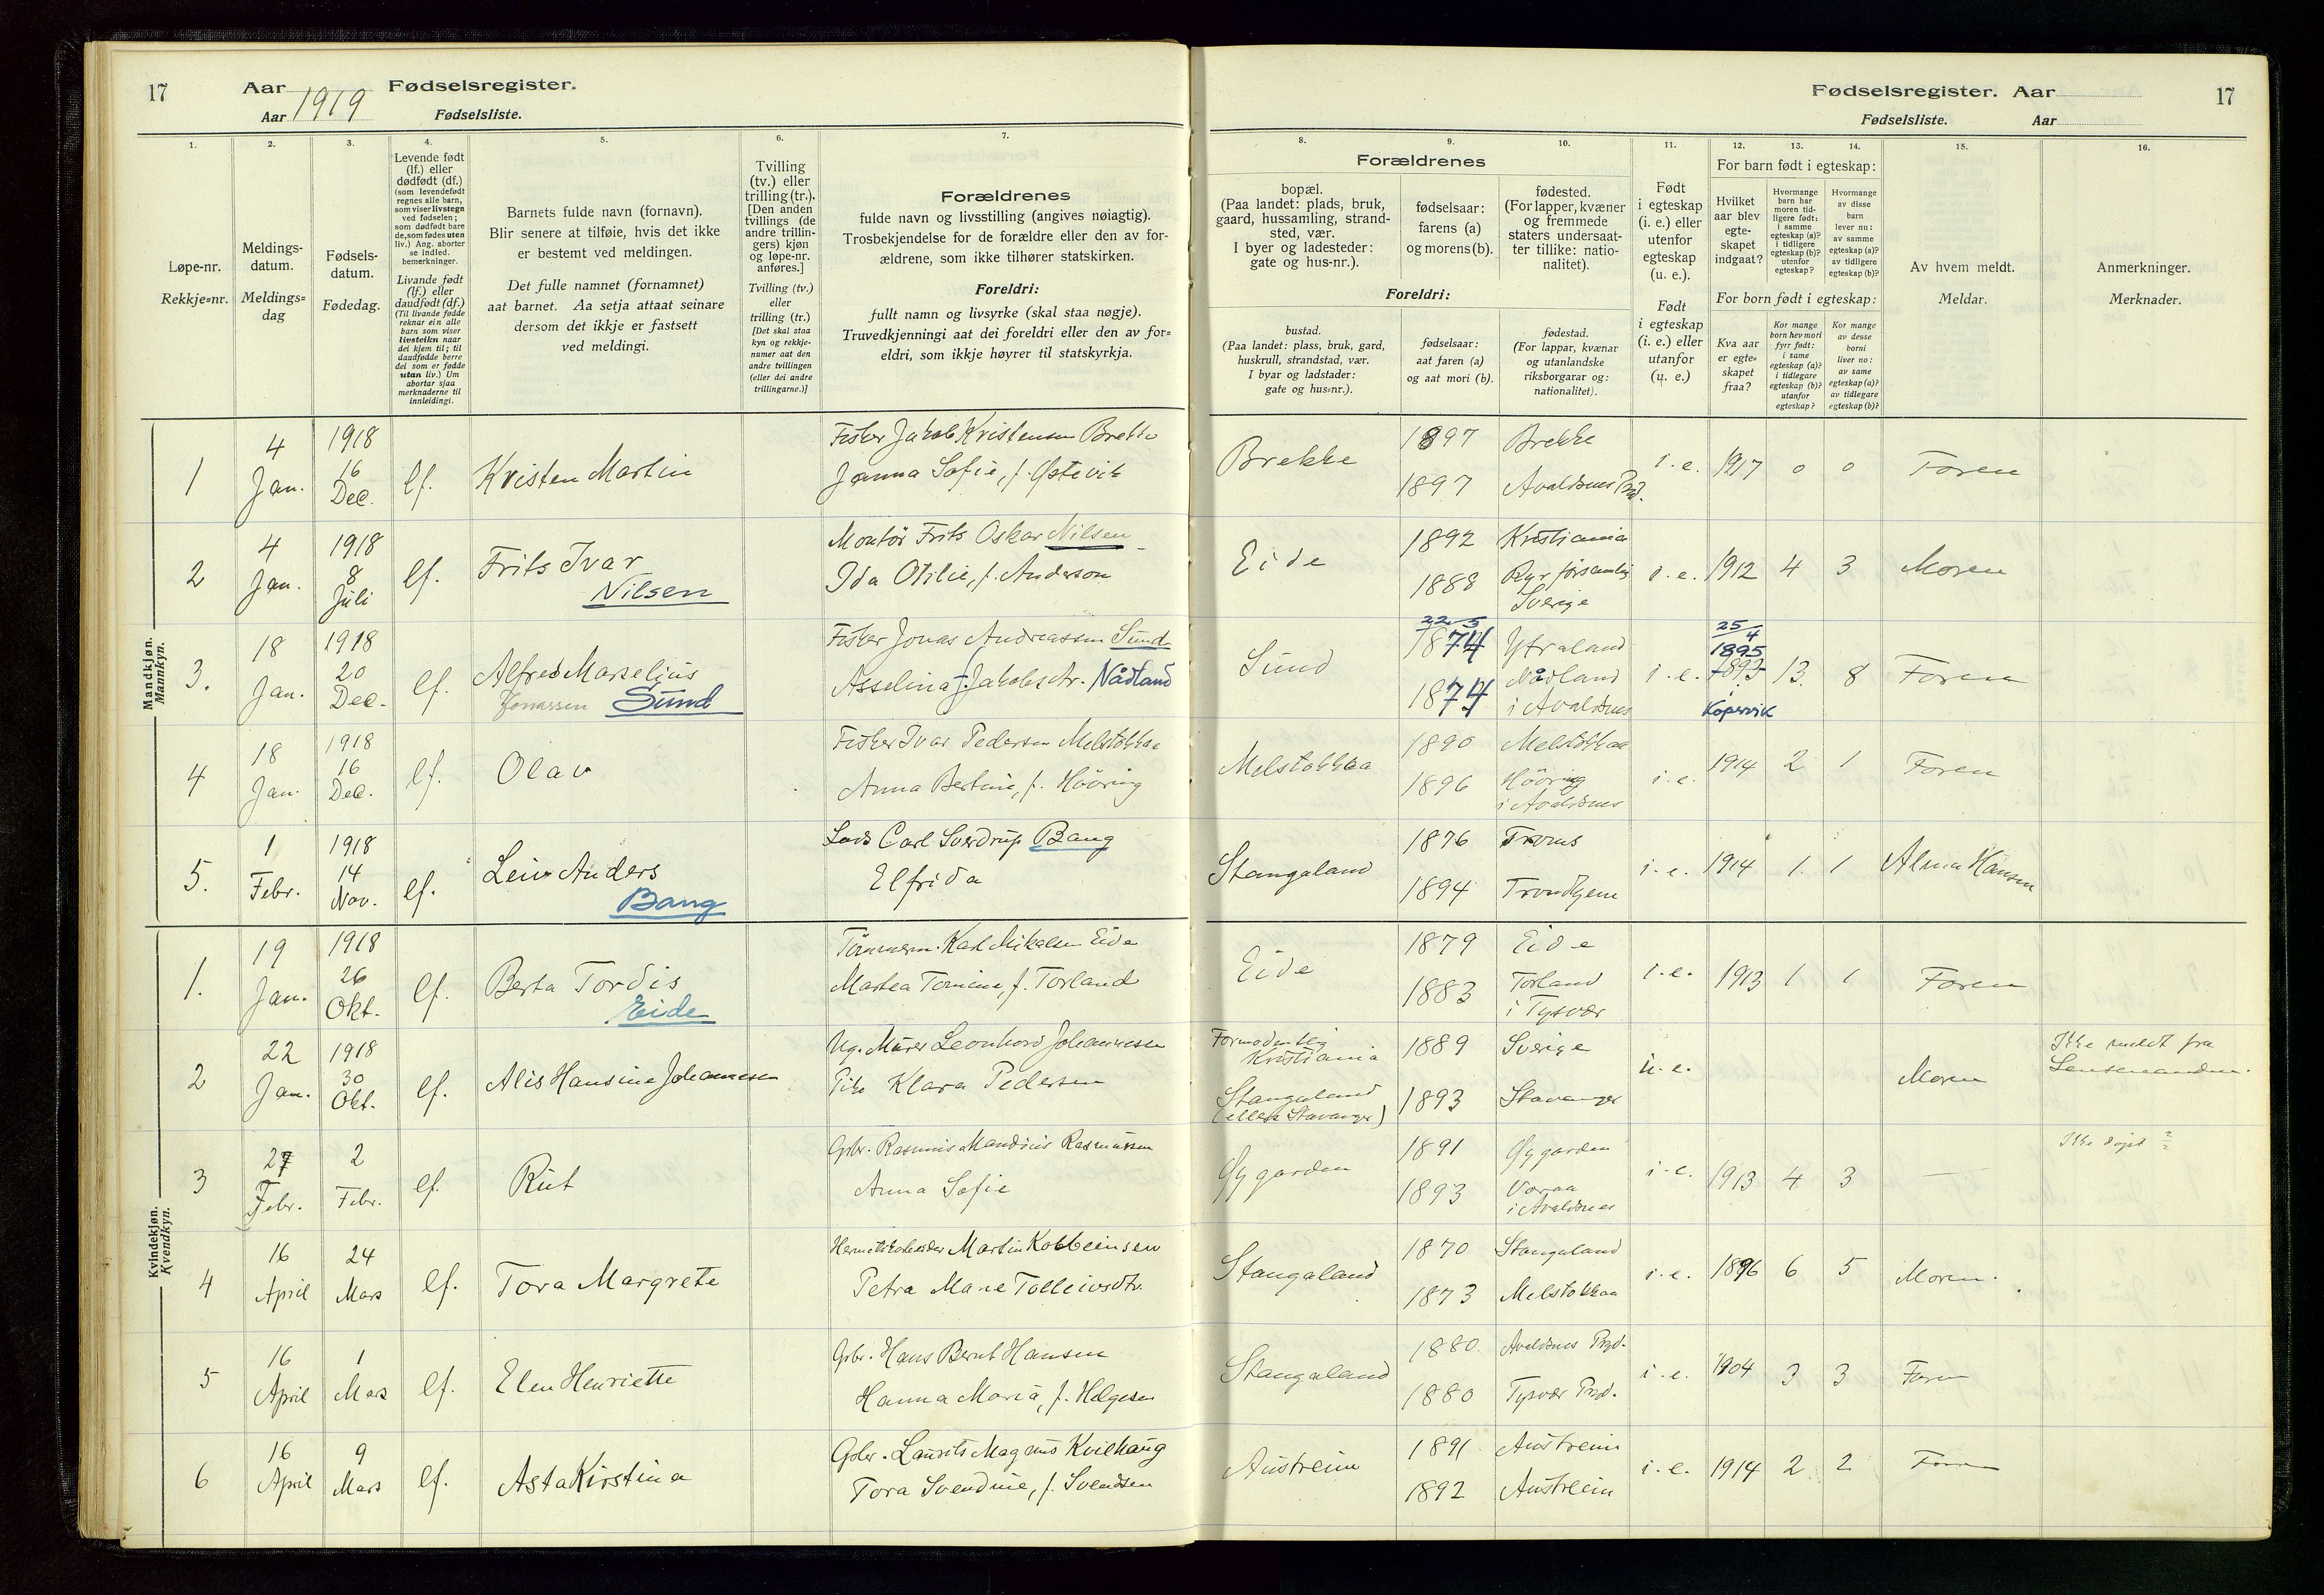 17
Aar Fødselsregister.
Aar 1919 Fødselsliste.
Fødselsregister. Aar
Fødselsliste. Aar
17
1. 2. 3. 4. 5. 6. 7.
Løpe-nr.
Rekkje=nr.
Meldings-
datum.
Meldings=
dag
Fødsels-
datum.
Fødedag.
Levende født
(lf.) eller
dødfødt (df.)
(som levendefødt
regnes alle barn,
som viser livstegn
ved fødselen;
som dødfødt bare
de, som fødes uten
liv.) Ang. aborter
se indled.
bemerkninger.
Livande født
(lf.) eller
daudfødt (df.)
(Til livande fødde
reknar ein alle
barn som viser
livsteikn naar
dei kjem til; til
daudfødde berre
dei som er fødde
utan liv.) Um
abortar sjaa
merknaderne til
innleidingi.
Barnets fulde navn (fornavn).
Blir senere at tilføie, hvis det ikke
er bestemt ved meldingen.
Det fulle namnet (fornamnet)
aat barnet. Aa setja attaat seinare
dersom det ikkje er fastsett
ved meldingi.
Tvilling
(tv.) eller
trilling (tr.).
[Den anden
tvillings (de
andre trillin-
gers) kjøn
og løpe-nr.
anføres.]
Tvilling (tv.)
eller
trilling (tr.)
[Det skal staa
kyn og rekkje-
numer aat den
andre tvillingen
(eller dei andre
trillingarne.)]
Forældrenes
fulde navn og livsstilling (angives nøiagtig).
Trosbekjendelse for de forældre eller den av for-
ældrene, som ikke tilhører statskirken.
Foreldri:
fullt namn og livsyrke (skal staa nøgje).
Truvedkjenningi aat dei foreldri eller den av for-
eldri, som ikkje høyrer til statskyrkja.
8. 9. 10. 11. 12. 13. 14. 15. 16.
Forældrenes
bopæl.
(Paa landet: plads, bruk,
gaard, hussamling, strand-
sted, vær.
I byer og ladesteder:
gate og hus-nr.).
fødselsaar:
farens (a)
og morens (b).
fødested.
(For lapper, kvæner
og fremmede
staters undersaat-
ter tillike: natio-
nalitet).
Foreldri:
bustad.
(Paa landet: plass, bruk, gard,
huskrull, strandstad, vær.
I byar og ladstader:
gate og hus=nr.).
fødselsaar:
aat faren (a)
og aat mori (b).
fødestad.
(For lappar, kvænar
og utanlandske
riksborgarar og:
nationalitet).
Født
i egteskap
(i. e.) eller
utenfor
egteskap
(u. e.).
Født
i egteskap
(i. e.) eller
utanfor
(u. e.)
For barn født i egteskap:
Hvilket
aar blev
egte-
skapet
indgaat?
Hvormange
barn har
moren tid-
ligere født:
i samme
egteskap (a)?
i tidligere
egteskap (b)?
utenfor
egteskap?
Hvormange
av disse
barn
lever nu:
av samme
egteskap (a)?
av tidligere
egteskap (b)?
For born født i egteskap:
Kva aar
er egte=
skapet
fraa?
Kor mange
born hev mori
fyrr født:
i same
egteskap (a)?
i tidlegare
egteskap (b)?
utanfor
egteskap?
Kor mange
av desse
borni
liver no:
av same
egteskap (a)?
av tidlegare
egteskap (b)?
Av hvem meldt.
Meldar.
Anmerkninger.
Merknader.
Mandkjøn.
Mannkyn.
1 4 Jan. 1918 16 Dec. lf. Kristen Martin
Fisker Jakob Kristensen Brekke
Janna Sofie, f. Østevik
Brekke 1897 Brekke
1897 Avaldsnes Prd. i. e. 1917 0 0 Faren
2 4 Jan. 1918 8 Juli lf. Frits Ivar
Nilsen
Montör Frits Oskar Nilsen
Ida Otilie, f. Anderson
Eide 1892 Kristiania
1888 Ryr församling
Sverige i. e. 1912 4 3 Moren
3. 18 Jan. 1918 20 Dec. lf. Alfred Marselius
Jonassen Sund
Fisker Jonas Andreassen Sund
Asselina f. Jakobsdtr. Nådland
Sund 22/5 1874 Ytraland
1874 Nådland
i Avaldsnes i. e. 25/4
1895
1893
Kopervik 13. 8 Faren
4 18 Jan. 1918 16 Dec. lf. Olav
Fisker Ivar Pedersen Melstokkaa
Anna Bertine, f. Hööring
Melstokkaa 1890 Melstokkaa
1896 Hööring
i Avaldsnes i. e. 1914 2 1 Faren
5. 1 Febr. 1918 14 Nov. lf. Leiv Anders
Bang
Lods Carl Sverdrup Bang
Elfrida
Stangaland 1876 Troms
1894 Trondhjem i. e. 1914 1. 1 Alma Hansen
Kvindekjøn.
Kvendkyn.
1. 19 Jan. 1918 26 Okt. lf. Berta Tordis
Eide
Tömmerm. Karl Mikalsen Eide
Martea Tomine, f. Torland
Eide 1879 Eide
1883 Torland
i Tysvær i. e. 1913 1 1 Faren
2 22 Jan. 1918 30 Okt. lf. Alis Hansine Johannesen
Ug. Murer Leonhard Johannessen
Pike Klara Pedersen
Formodentlig
Kristiania
Stangaland
(ellers Stavanger)
1889 Sverige
1893 Stavanger u. e. Moren
Ikke meldt fra
Lensmanden.
3 27 Febr. 2 Febr. lf. Rut
Gbr. Rasmus Mandius Rasmussen
Anna Sofie
Øygarden 1891 Øygarden
1893 Voraa
i Avaldsnes i. e. 1913 4 3 —
Ikke døpt
4 16 April 24 Mars lf. Tora Margrete
Hermetikarbeider Martin Kolbeinsen
Petra Marie Tolleivsdtr.
Stangaland 1870 Stangaland
1873 Melstokkaa i. e. 1896 6 5 Moren.
5 16 April 1 Mars lf. Elen Henriette
Gbr. Hans Bernt Hansen
Hanna Maria, f. Helgesen
Stangaland 1880. Avaldsnes Prgd.
1880 Tysvær Prgd. i. e. 1904 3 3 Faren
6 16 April 9 Mars lf. Asta Kirstina
Gbr. Laurits Magnus Kvilhaug
Tora Svendine, f. Svendsen
Austreim 1891 Austreim
1892 Austreim i. e. 1914 2 2 Faren